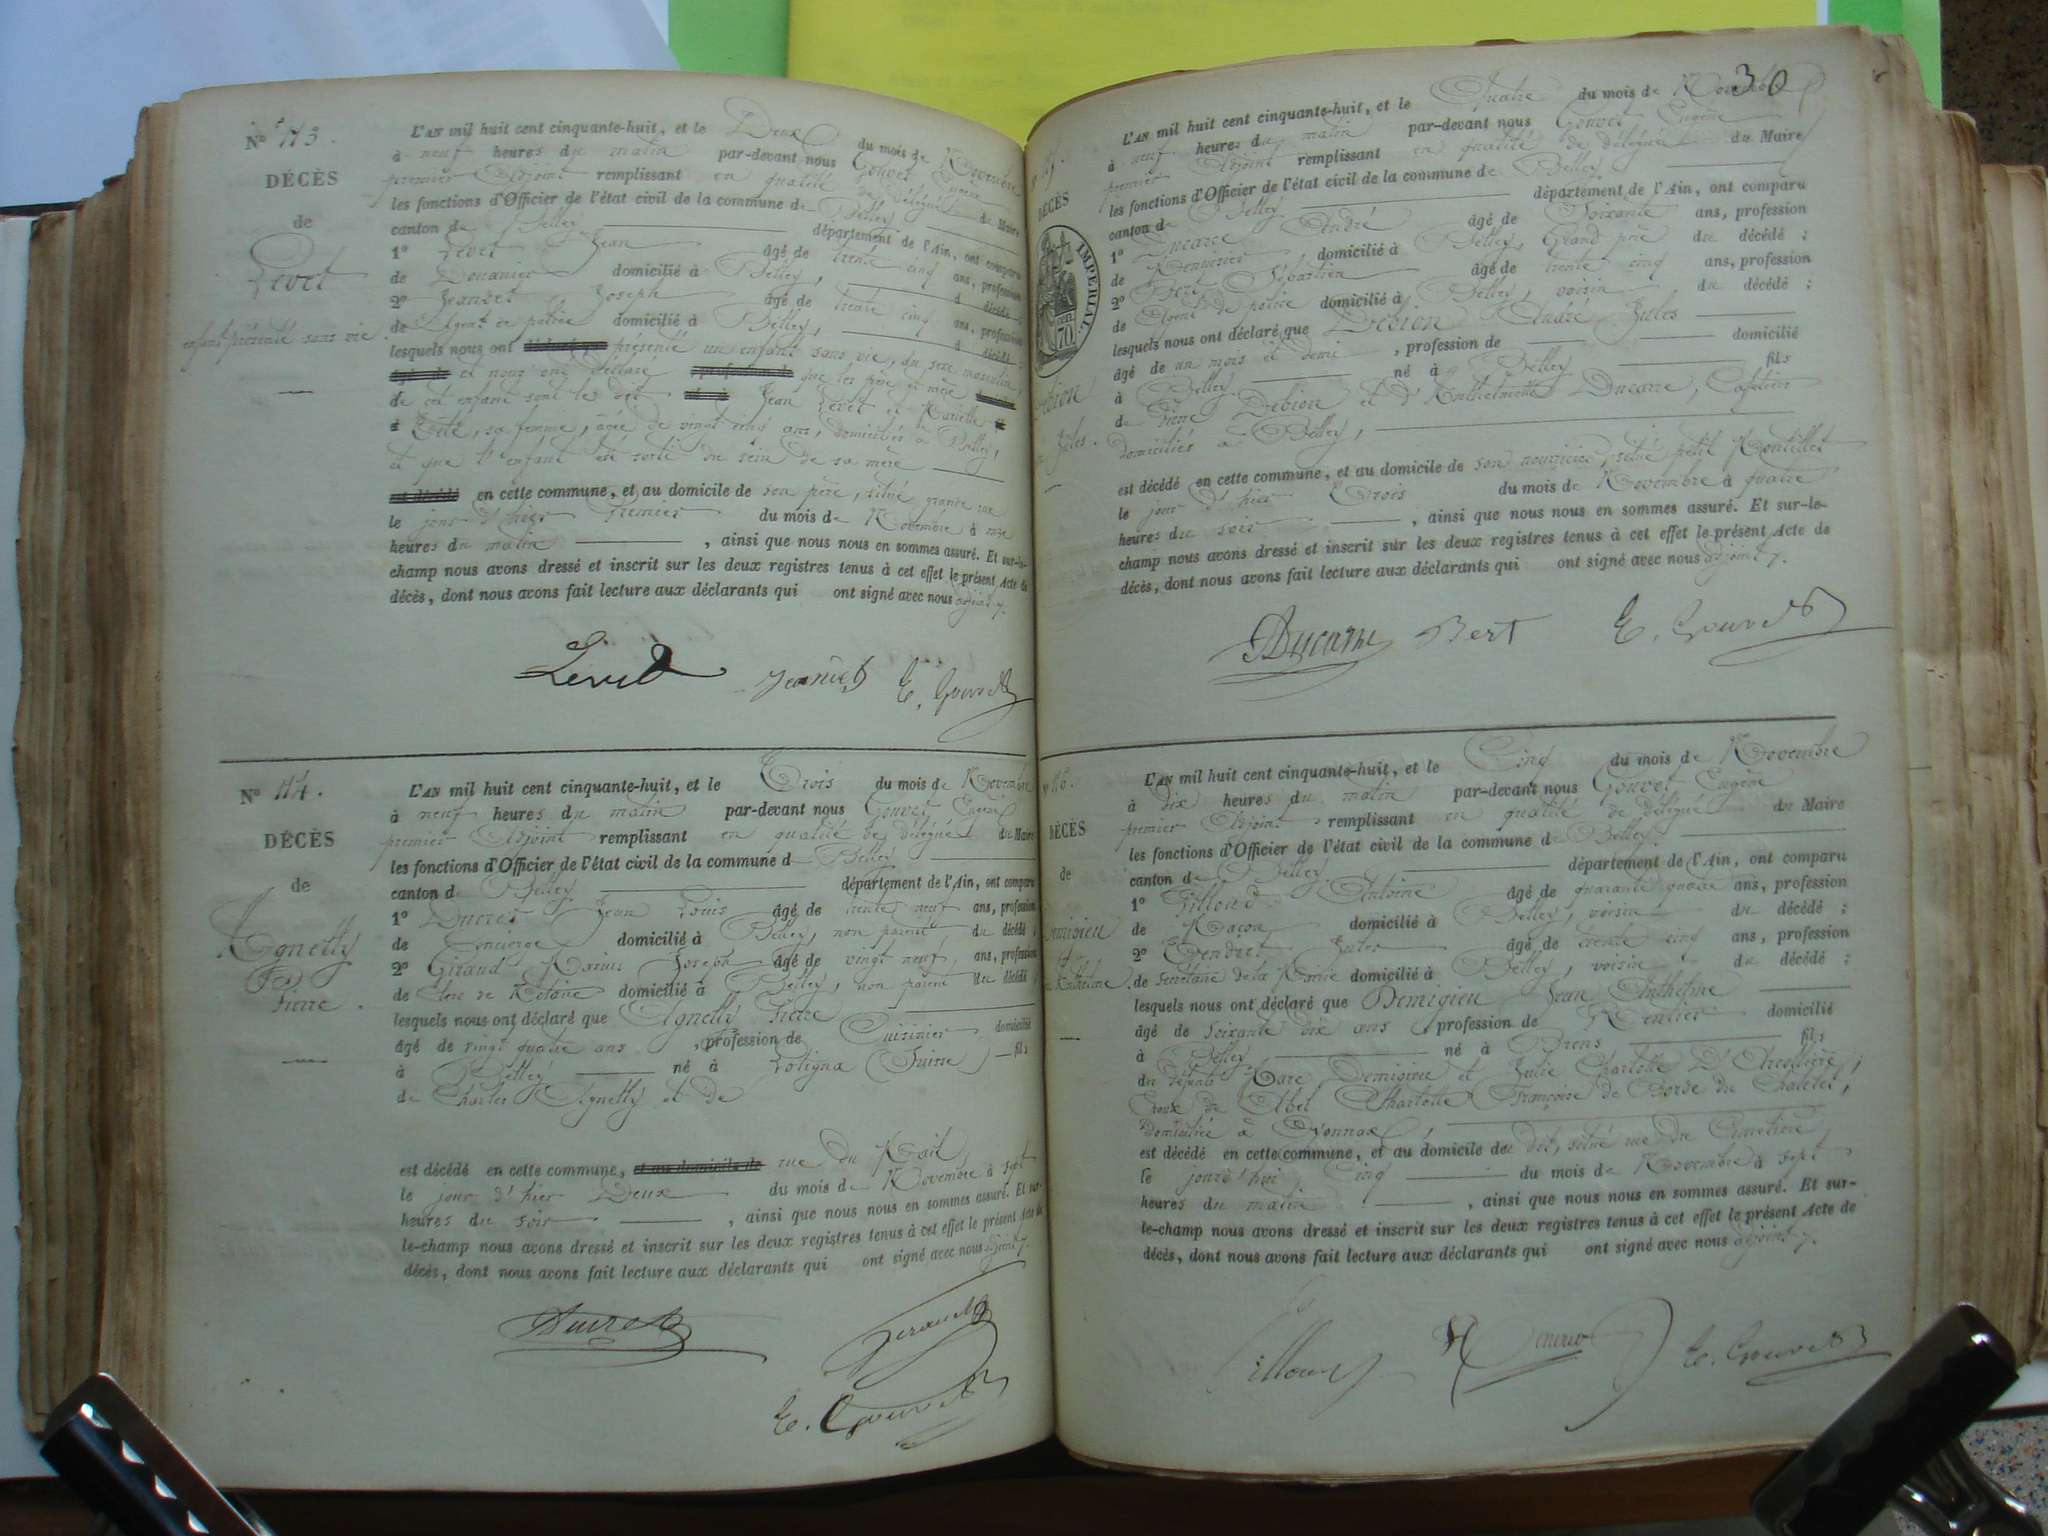 Nº 113.
DÉCÈS
de
Levet
enfant présenté sans vie.
L'AN mil huit cent cinquante-huit, et le Deux du mois de Novembre
à neuf heures du matin par-devant nous Gouvet Eugène
premier Adjoint remplissant en qualité de délégué du Maire
les fonctions d'Officier de l'état civil de la commune de Belley
canton de Belley département de l'Ain, ont comparu
1º Levet Jean âgé de trente cinq ans, profession
de Douanier domicilié à Belley, d décédé ;
2º Jeannet Joseph âgé de trente cinq ans, profession
de Agent de police domicilié à Belley, d décédé
lesquels nous ont présenté un enfant sans vie, du sexe masculin,
et nous ont déclaré que les père et mère
de cet enfant sont le dit Jean Levet et
sa femme, âgée de vingt cinq ans, domiciliés à Belley,
et que l'enfant est sorti du sein de sa mère
en cette commune, et au domicile de son père, situé grande rue
le jour d'hier Premier du mois de Novembre à onze
heures du matin , ainsi que nous nous en sommes assuré. Et sur-le-
champ nous avons dressé et inscrit sur les deux registres tenus à cet effet le présent Acte de
décès, dont nous avons fait lecture aux déclarants qui ont signé avec nous adjoint
Levet Jeannet E. Gouvet
Nº 114.
DÉCÈS
de
Agnelly
Pierre.
L'AN mil huit cent cinquante-huit, et le Trois du mois de Novembre
à neuf heures du matin par-devant nous Gouvet Eugène
premier Adjoint remplissant en qualité de délégué du Maire
les fonctions d'Officier de l'état civil de la commune d Belley
canton de Belley département de l'Ain, ont comparu
1º Ducret Jean Louis âgé de trente neuf ans, profession
de Concierge domicilié à Belley, non parent du décédé ;
2º Giraud Marius Joseph âgé de vingt neuf ans, profession
de Clerc de Notaire domicilié à Belley, non parent du décédé
lesquels nous ont déclaré que Agnelly Pierre
âgé de vingt quatre ans , profession de Cuisinier domicilié
à Belley né à Lotigna (Suisse) fils
de Charles Agnelly et de
est décédé en cette commune, et au domicile de rue du Mail,
le jour d'hier Deux du mois de Novembre à sept
heures du soir , ainsi que nous nous en sommes assuré. Et sur-
le-champ nous avons dressé et inscrit sur les deux registres tenus à cet effet le présent Acte de
décès, dont nous avons fait lecture aux déclarants qui ont signé avec nous adjoint
Ducret Giraud
E. Gouvet
30
DÉCÈS
IMPÉRIAL.
70
L'AN mil huit cent cinquante-huit, et le Quatre du mois de Novembre
à neuf heures du matin par-devant nous Gouvet Eugène
premier Adjoint remplissant en qualité de délégué du Maire
les fonctions d'Officier de l'état civil de la commune de Belley
canton de Belley département de l'Ain, ont comparu
1º Ducarre André âgé de Soixante ans, profession
de Menuisier domicilié à Belley, Grand père du décédé ;
2º Bert Sébastien âgé de trente cinq ans, profession
de Agent de police domicilié à Belley, voisin du décédé ;
lesquels nous ont déclaré que Debion André Jules
âgé de un mois et demi , profession de domicilié
à Belley né à Belley fils
de Pierre Debion et d'Anthelmette Ducarre, Cafetiers
domiciliés à Belley,
est décédé en cette commune, et au domicile de son nourricier, situé petit
le jour d'hier Trois du mois de Novembre à quatre
heures du soir , ainsi que nous nous en sommes assuré. Et sur-le-
champ nous avons dressé et inscrit sur les deux registres tenus à cet effet le présent Acte de
décès, dont nous avons fait lecture aux déclarants qui ont signé avec nous adjoint
Ducarre Bert E. Gouvet
DÉCÈS
de
L'AN mil huit cent cinquante-huit, et le Cinq du mois de Novembre
à dix heures du matin par-devant nous Gouvet Eugène
premier Adjoint remplissant en qualité de délégué du Maire
les fonctions d'Officier de l'état civil de la commune de Belley
canton de Belley département de l'Ain, ont comparu
1º Tilloud Antoine âgé de quarante quatre ans, profession
de Maçon domicilié à Belley, voisin du décédé ;
2º Jules âgé de trente cinq ans, profession
de Secrétaire de la Mairie domicilié à Belley, voisin du décédé ;
lesquels nous ont déclaré que Demigieu Jean Anthelme
âgé de Soixante dix ans profession de Rentier domicilié
à Belley né à Brens fils
du défunt Marc Demigieu et Julie Charlotte
Charlotte Françoise de
domiciliée à Oyonnax,
est décédé en cette commune, et au domicile de dit, situé rue du Cimetière
le jourd'hui Cinq du mois de Novembre à sept
heures du matin , ainsi que nous nous en sommes assuré. Et sur-
le-champ nous avons dressé et inscrit sur les deux registres tenus à cet effet le présent Acte de
décès, dont nous avons fait lecture aux déclarants qui ont signé avec nous adjoint
Tilloud E. Gouvet